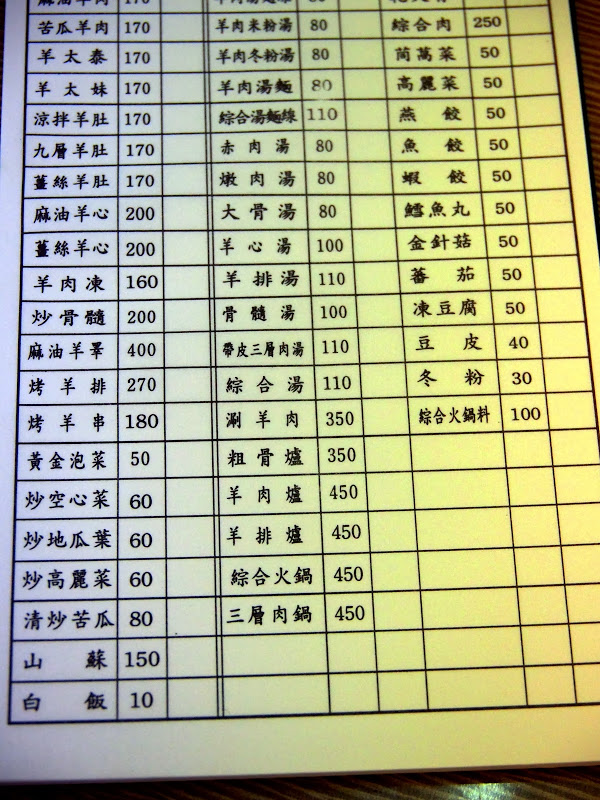 麻油羊肉 170
苦瓜羊肉 170
羊太泰 170
羊太妹 170
涼拌羊肚 170
九層羊肚 170
薑絲羊肚 170
麻油羊心 200
薑絲羊心 200
羊肉凍 160
炒骨髓 200
麻油羊睪 400
烤羊排 270
烤羊串 180
黃金泡菜 50
炒空心菜 60
炒地瓜葉 60
炒高麗菜 60
清炒苦瓜 80
山蘇 150
白飯 10
羊肉米粉湯 80
羊肉冬粉湯 80
羊肉湯麵 80
綜合湯麵線 110
赤肉湯 80
燉肉湯 80
大骨湯 80
羊心湯 100
羊排湯 110
骨髓湯 100
帶皮三層肉湯 110
綜合湯 110
涮羊肉 350
粗骨爐 350
羊肉爐 450
羊排爐 450
綜合火鍋 450
三層肉鍋 450
綜合肉 250
茼萵菜 50
高麗菜 50
燕餃 50
魚餃 50
蝦餃 50
鱈魚丸 50
金針菇 50
蕃茄 50
凍豆腐 50
豆皮 40
冬粉 30
綜合火鍋料 100